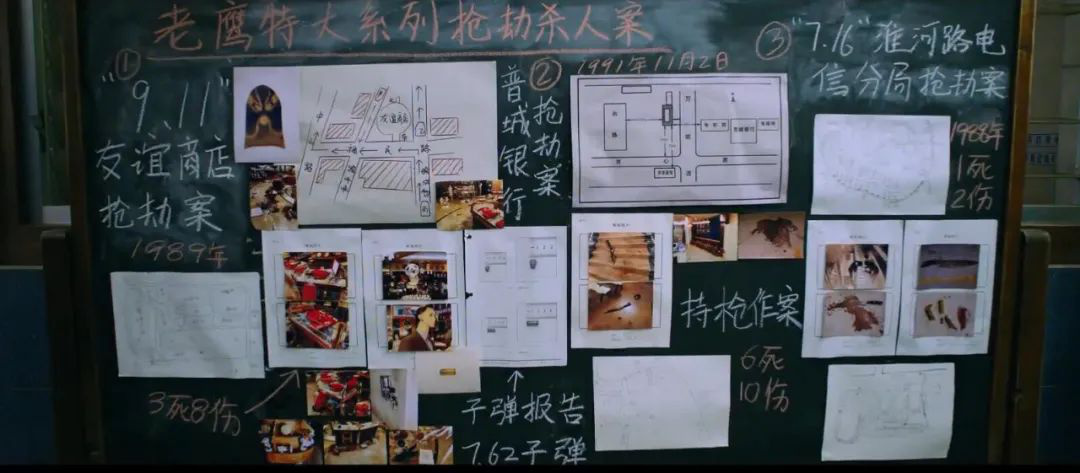 老鹰特大系列抢劫杀人案
①
"9.11"
友谊商店
抢劫案
1989年
3死8伤
友谊商店
子弹报告
7.62子弹
②
普城银行
抢劫案
1991年11月2日
持枪作案
6死
10伤
③
"7.16"淮河路电
信分局抢劫案
1988年
1死
2伤